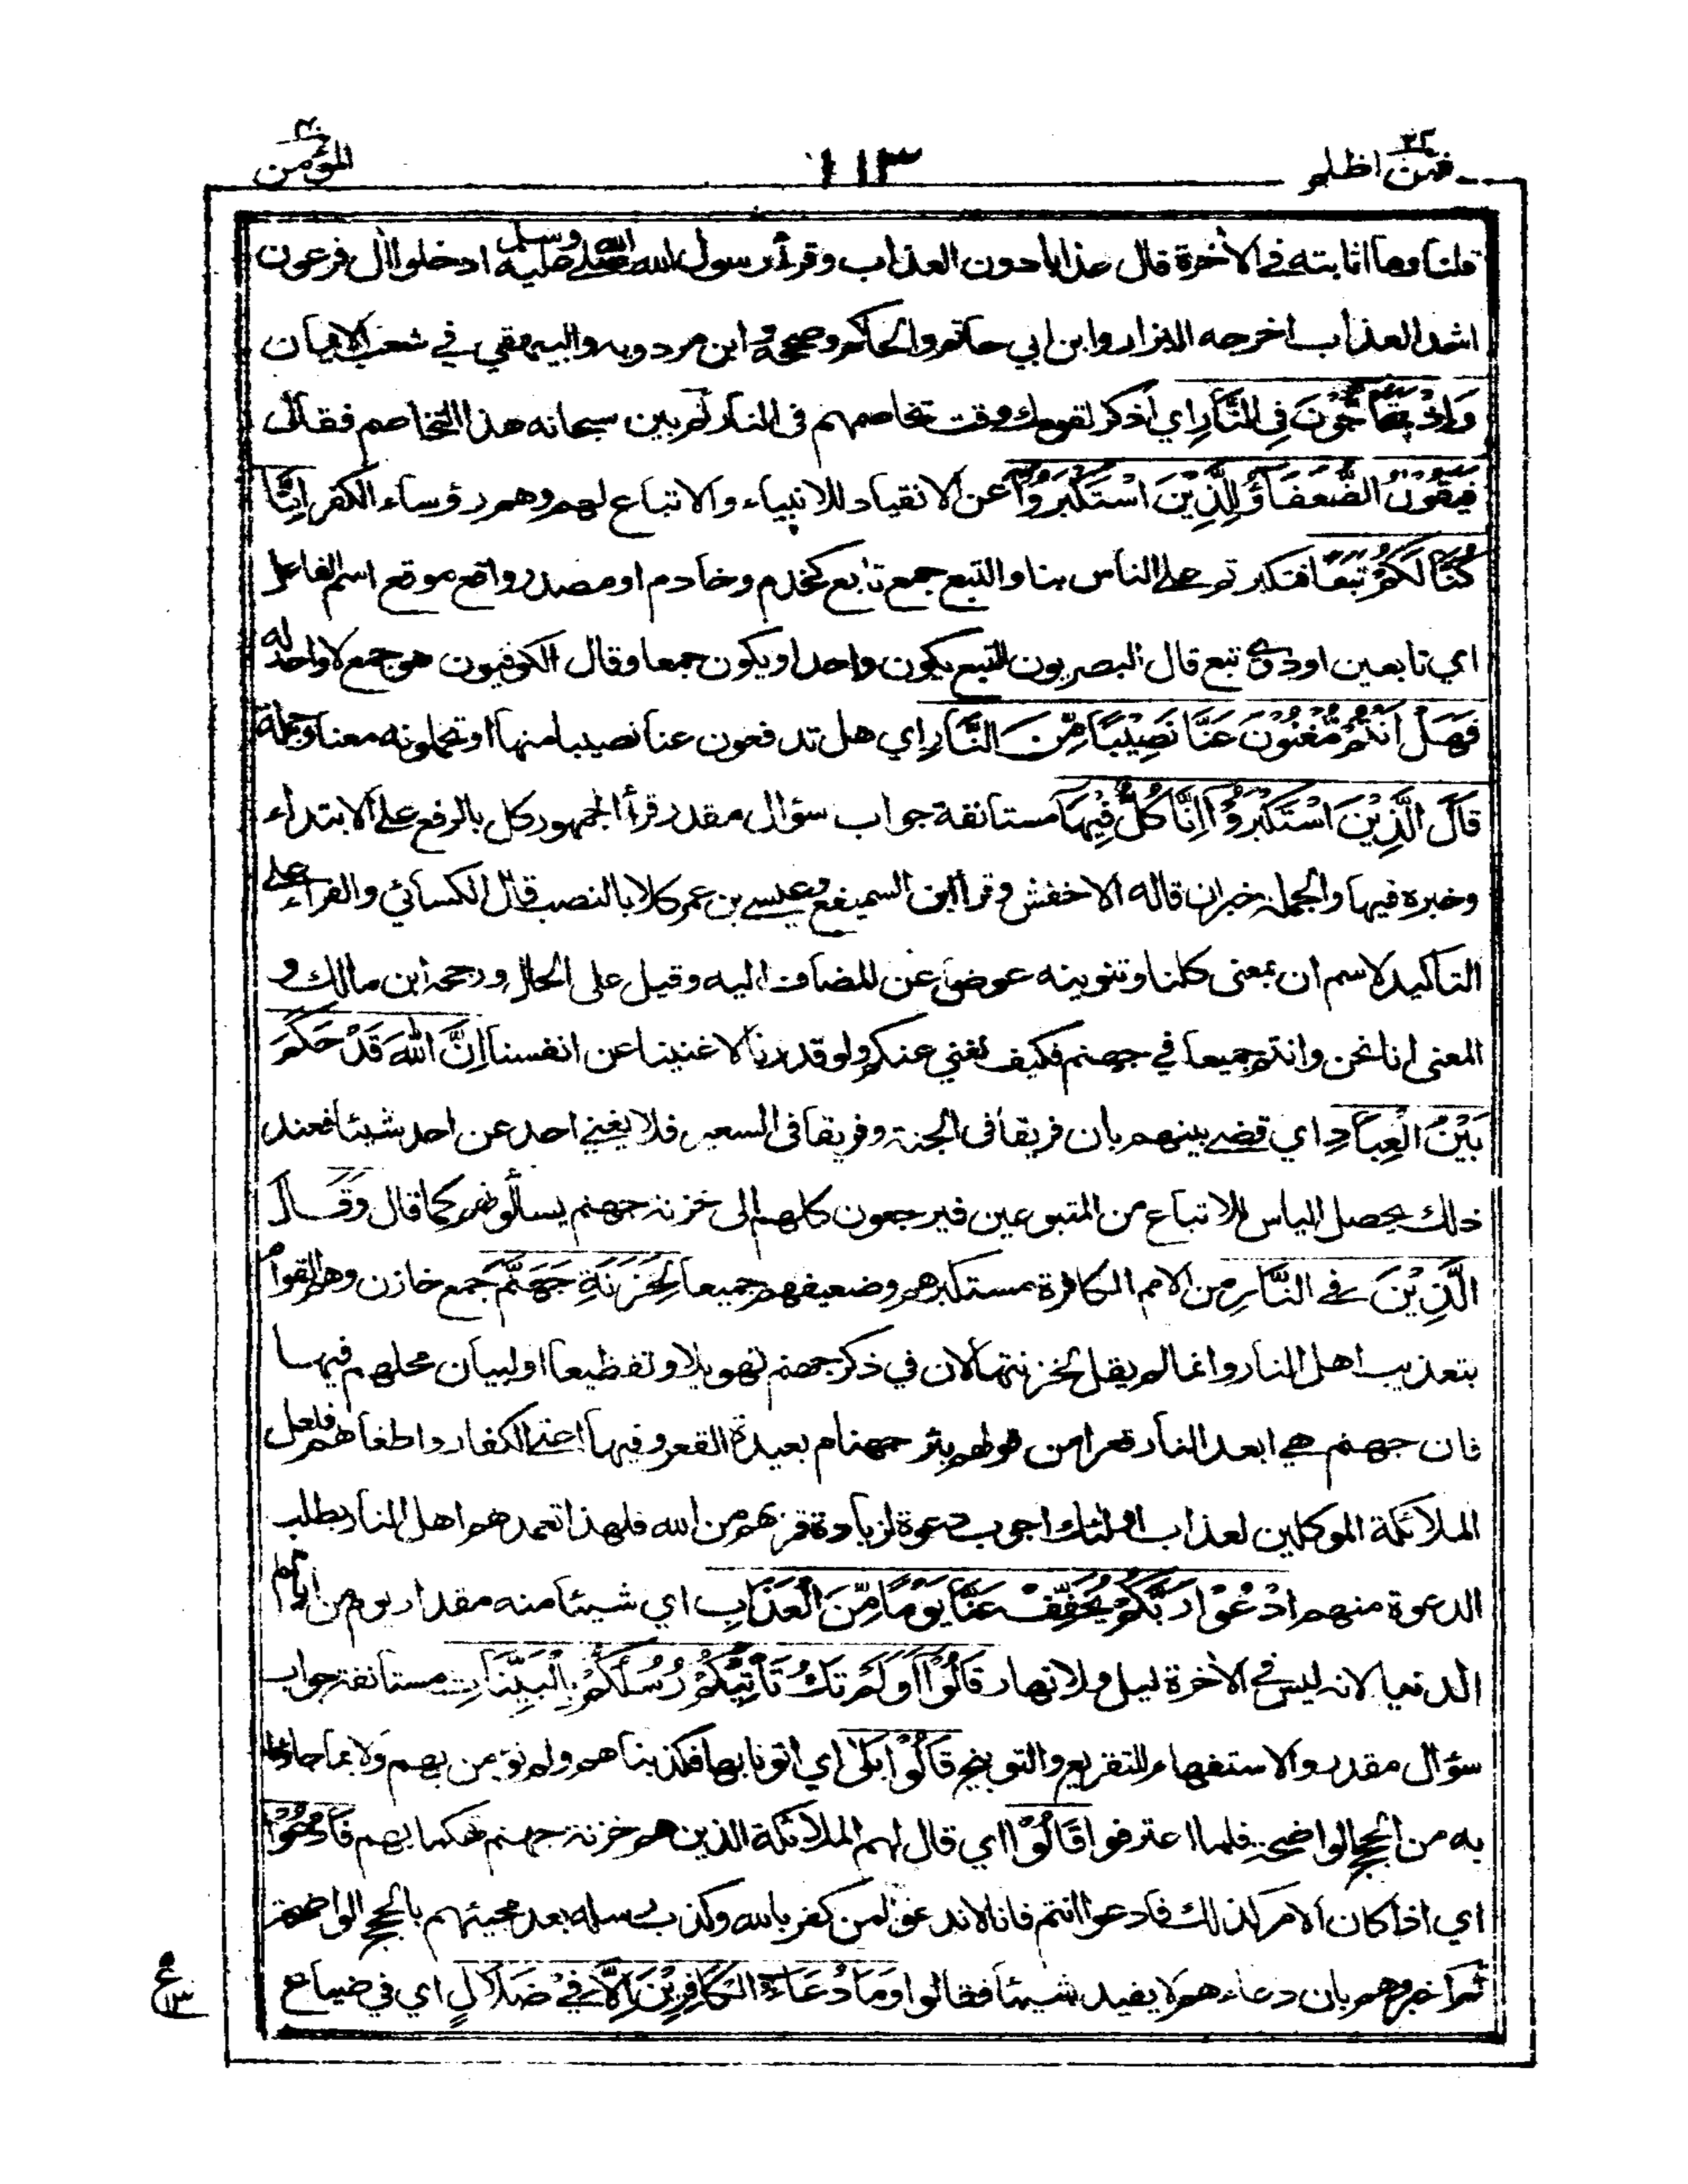 فمن اظلم ٢٤
١١٣
المؤمن ٤٠
قلنا وما اثابته في الآخرة قال عذابا دون العذاب وقرأ رسول الله صلى الله عليه وسلم ادخلوا اٰل فرعون
اشد العذاب اخرجه البزار وابن ابي حاتم والحاكم وصححه وابن مردويه والبيهقي في شعب الايمان
وَاِذْ يَتَحَاۤجُّوْنَ فِي النَّارِ اي اذكر لقومك وقت تخاصمهم في النار ثم بين سبحانه هذا التخاصم فقال
فَيَقُوْلُ الضُّعَفَاۤؤُ لِلَّذِيْنَ اسْتَكْبَرُوْۤا عن الانقياد للانبياء والاتباع لهم وهم رؤساء الكفر اِنَّا
كُنَّا لَكُمْ تَبَعًا فتكبرتم على الناس بنا والتبع جمع تابع كخدم وخادم او مصدر واقع موقع اسم الفاعل
اي تابعين او ذوي تبع قال البصريون التبع يكون واحدا ويكون جمعا وقال الكوفيون هو جمع لا واحد له
فَهَلْ اَنْتُمْ مُّغْنُوْنَ عَنَّا نَصِيْبًا مِّنَ النَّارِ اي هل تدفعون عنا نصيبا منها او تحملونه معنا وجملة
قَالَ الَّذِيْنَ اسْتَكْبَرُوْۤا اِنَّا كُلٌّ فِيْهَا مستانفة جواب سؤال مقدر قرأ الجمهور كل بالرفع على الابتداء
وخبره فيها والجملة خبر ان قاله الاخفش وقرأ ابن السميفع وعيسى بن عمر كلا بالنصب قال الكسائي والفراء على
التاكيد لاسم ان بمعنى كلنا وتنوينه عوض عن المضاف اليه وقيل على الحال ورجحه ابن مالك و
المعنى انا نحن وانتم جميعا في جهنم فكيف نغني عنكم ولو قدرنا لاغنينا عن انفسنا اِنَّ اللّٰهَ قَدْ حَكَمَ
بَيْنَ الْعِبَادِ اي قضى بينهم بان فريقا في الجنة وفريقا في السعير فلا يغني احد عن احد شيئا فعند
ذلك يحصل الياس للاتباع من المتبوعين فيرجعون كلهم الى خزنة جهنم يسألونهم كما قال وَقَالَ
الَّذِيْنَ فِي النَّارِ من الامم الكافرة مستكبرهم وضعيفهم جميعا لِخَزَنَةِ جَهَنَّمَ جمع خازن وهم القوام
بتعذيب اهل النار وانما لم يقل لخزنتها لان في ذكر جهنم تهويلا وتفظيعا او لبيان محلهم فيها
فان جهنم هي ابعد النار قعرا من قولهم بئر جهنام بعيدة القعر وفيها اعتى الكفار واطغاهم فلعل
الملائكة الموكلين لعذاب اولئك اجوب دعوة لزيادة قربهم من الله فلهذا تعمدهم اهل النار بطلب
الدعوة منهم ادْعُوْا رَبَّكُمْ يُخَفِّفْ عَنَّا يَوْمًا مِّنَ الْعَذَابِ اي شيئا منه مقدار يوم من ايام
الدنيا لانه ليس في الآخرة ليل ولا نهار قَالُوْۤا اَوَلَمْ تَكُ تَأْتِيْكُمْ رُسُلُكُمْ بِالْبَيِّنَاتِ مستانفة جواب
سؤال مقدر والاستفهام للتقريع والتوبيخ قَالُوْا بَلٰى اي اتونا بها فكذبناهم ولم نؤمن بهم ولا بما جاؤا
به من الحجج الواضحة فلما اعترفوا قَالُوْا اي قال لهم الملائكة الذين هم خزنة جهنم تهكما بهم فَادْعُوْا
اي اذا كان الامر كذلك فادعوا انتم فانا لا ندعو لمن كفر بالله وكذب رسله بعد مجيئهم بالحجج الواضحة
ثم اخبروهم بان دعاءهم لا يفيد شيئا فقالوا وَمَا دُعَاۤءُ الْكَافِرِيْنَ اِلَّا فِيْ ضَلَالٍ اي في ضياع
ع
١٣